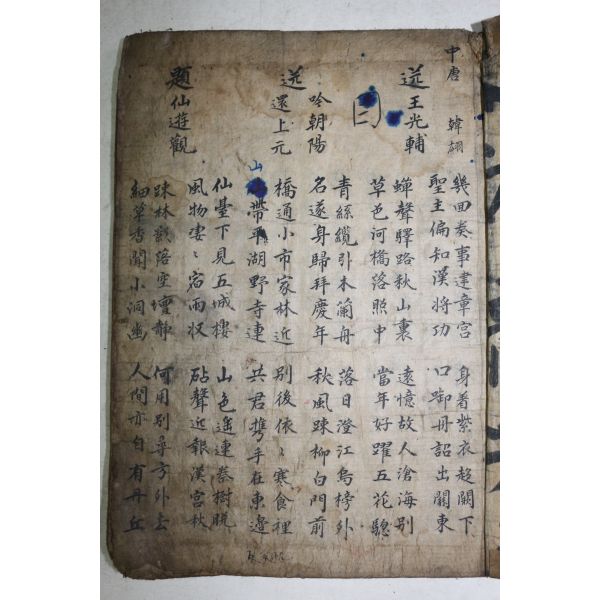 中唐 韓翃
送王光輔
幾回奏事建章宮 身着紫衣趍闕下
聖主偏知漢將功 口啣丹詔出關東
蟬聲驛路秋山裏 遠憶故人滄海別
草色河橋落照中 當年好躍五花驄
送吟朝陽
還上元
青絲纜引木蘭舟 落日澄江烏榜外
名遂身歸拜慶年 秋風踈柳白門前
橋通小市家林近 別後依〻寒食裡
山帶平湖野寺連 共君携手在東邊
題仙遊觀
仙臺下見五城樓 山色遙連秦樹晩
風物凄〻宿雨収 砧聲近報漢宮秋
踈林影落空壇靜 何用別尋方外去
細草香閒小洞幽 人間亦自有丹丘